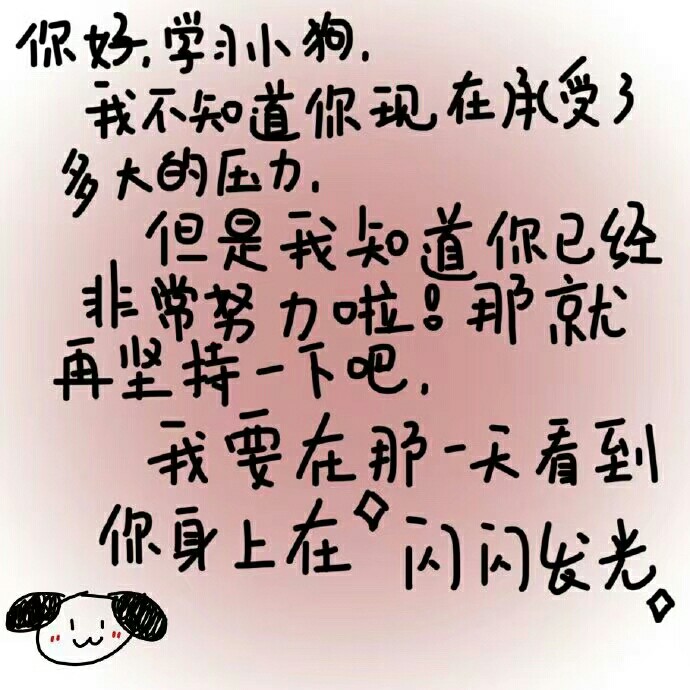 你好,学习小狗.
我不知道你现在承受了
多大的压力.
但是我知道你已经
非常努力啦!那就
再坚持一下吧.
我要在那一天看到
你身上在闪闪发光